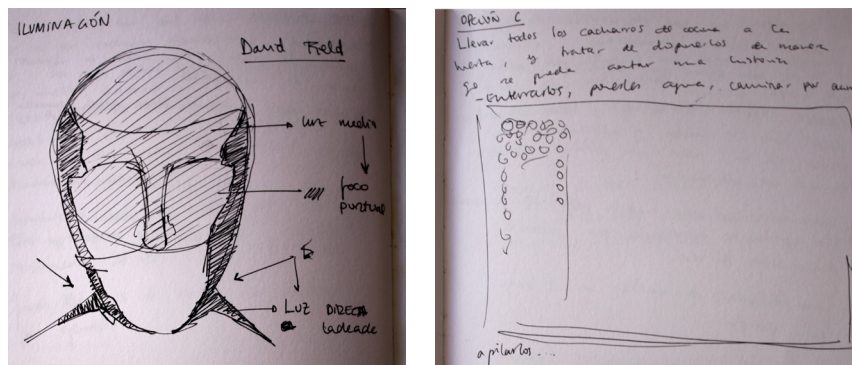 ILUMINACIÓN
David Field
luz media
foco
puntual
LUZ DIRECTA
ladeada
OPCIÓN C
Llevar todos los cacharros de cocina a la
huerta, y tratar de disponerlos de manera
q se pueda contar una historia
- Enterrarlos, ponerles agua, caminar por
apilarlos...